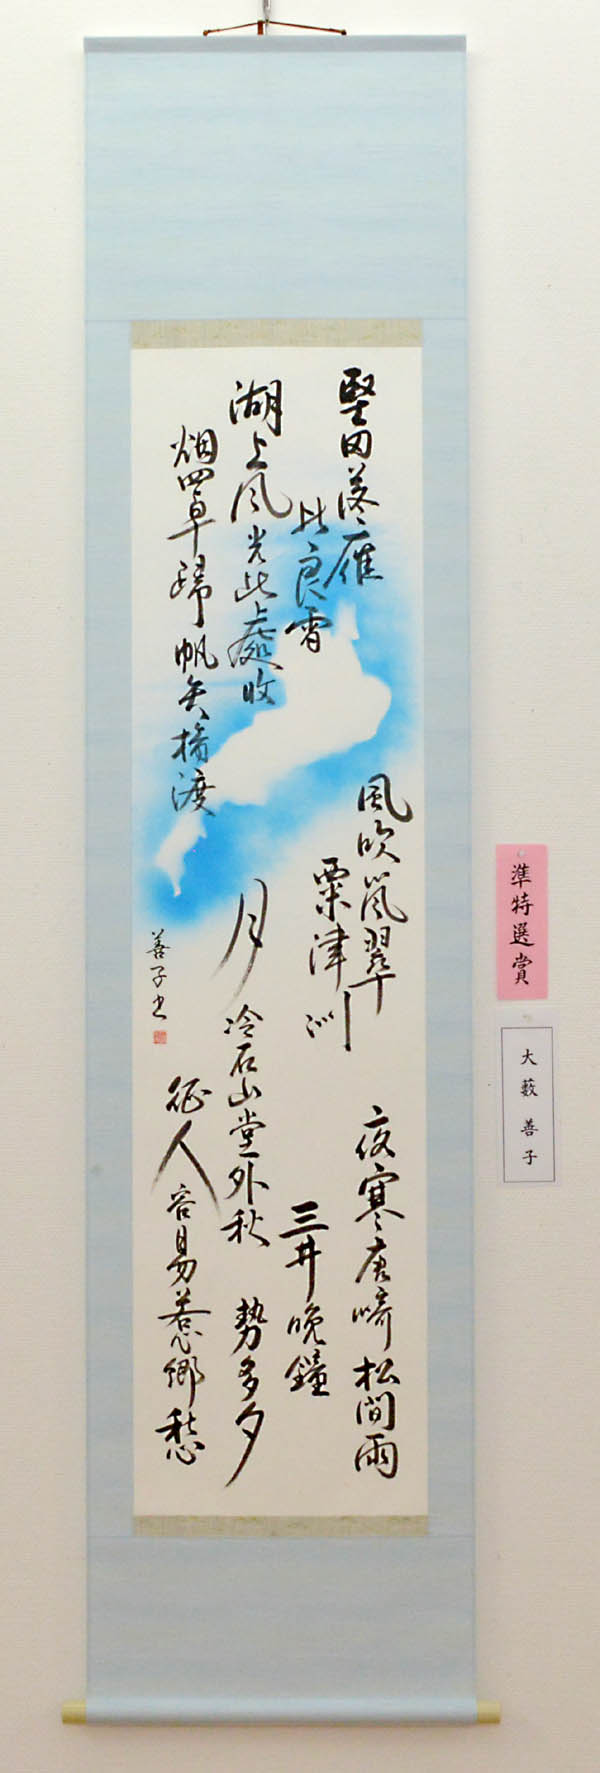 堅田落雁
比良雪
湖上風光此處收
烟罩歸帆矢橋渡
風吹嵐翠
粟津洲
夜寒唐崎松間雨
月冷石山堂外秋
三井晚鐘
勢多夕
征人容易惹鄉愁
善子書
準特選賞
大藪善子